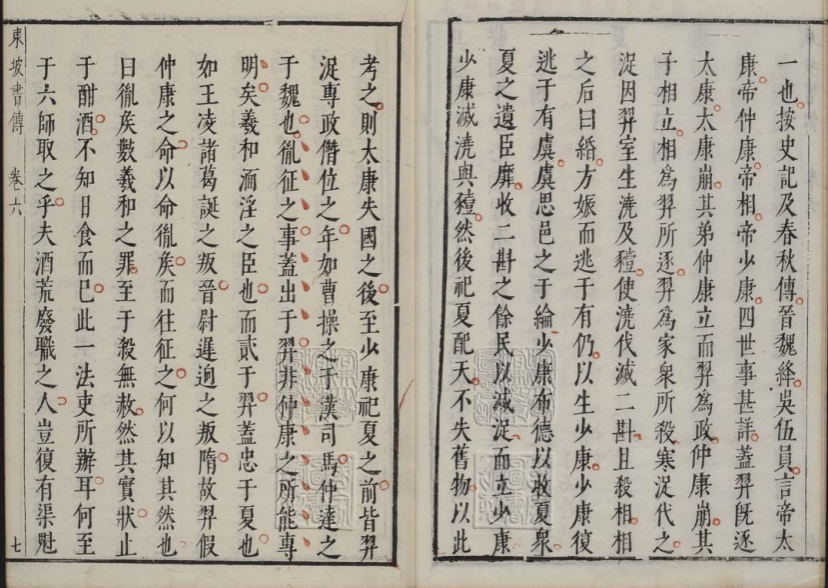 一也按史記及春秋傳晉魏絳吳伍員言帝太
康帝仲康帝相帝少康四世事甚詳蓋羿旣逐
太康太康崩其弟仲康立而羿為政仲康崩其
子相立相爲羿所逐羿爲家衆所殺寒浞代之
浞因羿室生澆及豷使澆伐滅二斟且殺相相
之后曰緡方娠而逃于有仍以生少康少康復
逃于有虞虞思邑之于綸少康布德以收夏衆
夏之遺臣靡收二斟之餘民以滅浞而立少康
少康滅澆與豷然後祀夏配天不失舊物以此
考之則太康失國之後至少康祀夏之前皆羿
浞專政僭位之年如曹操之于漢司馬仲達之
于魏也胤征之事蓋出于羿非仲康之所能專
明矣羲和湎淫之臣也而貳于羿蓋忠于夏也
如王凌諸葛誕之叛晉尉遲迥之叛隋故羿假
仲康之命以命胤矦而往征之何以知其然也
曰胤矦數羲和之罪至于殺無赦然其實狀止
于酣酒不知日食而巳此一法吏所辦耳何至
于六師取之乎夫酒荒廢職之人豈復有渠魁
東坡書傳 卷六 七